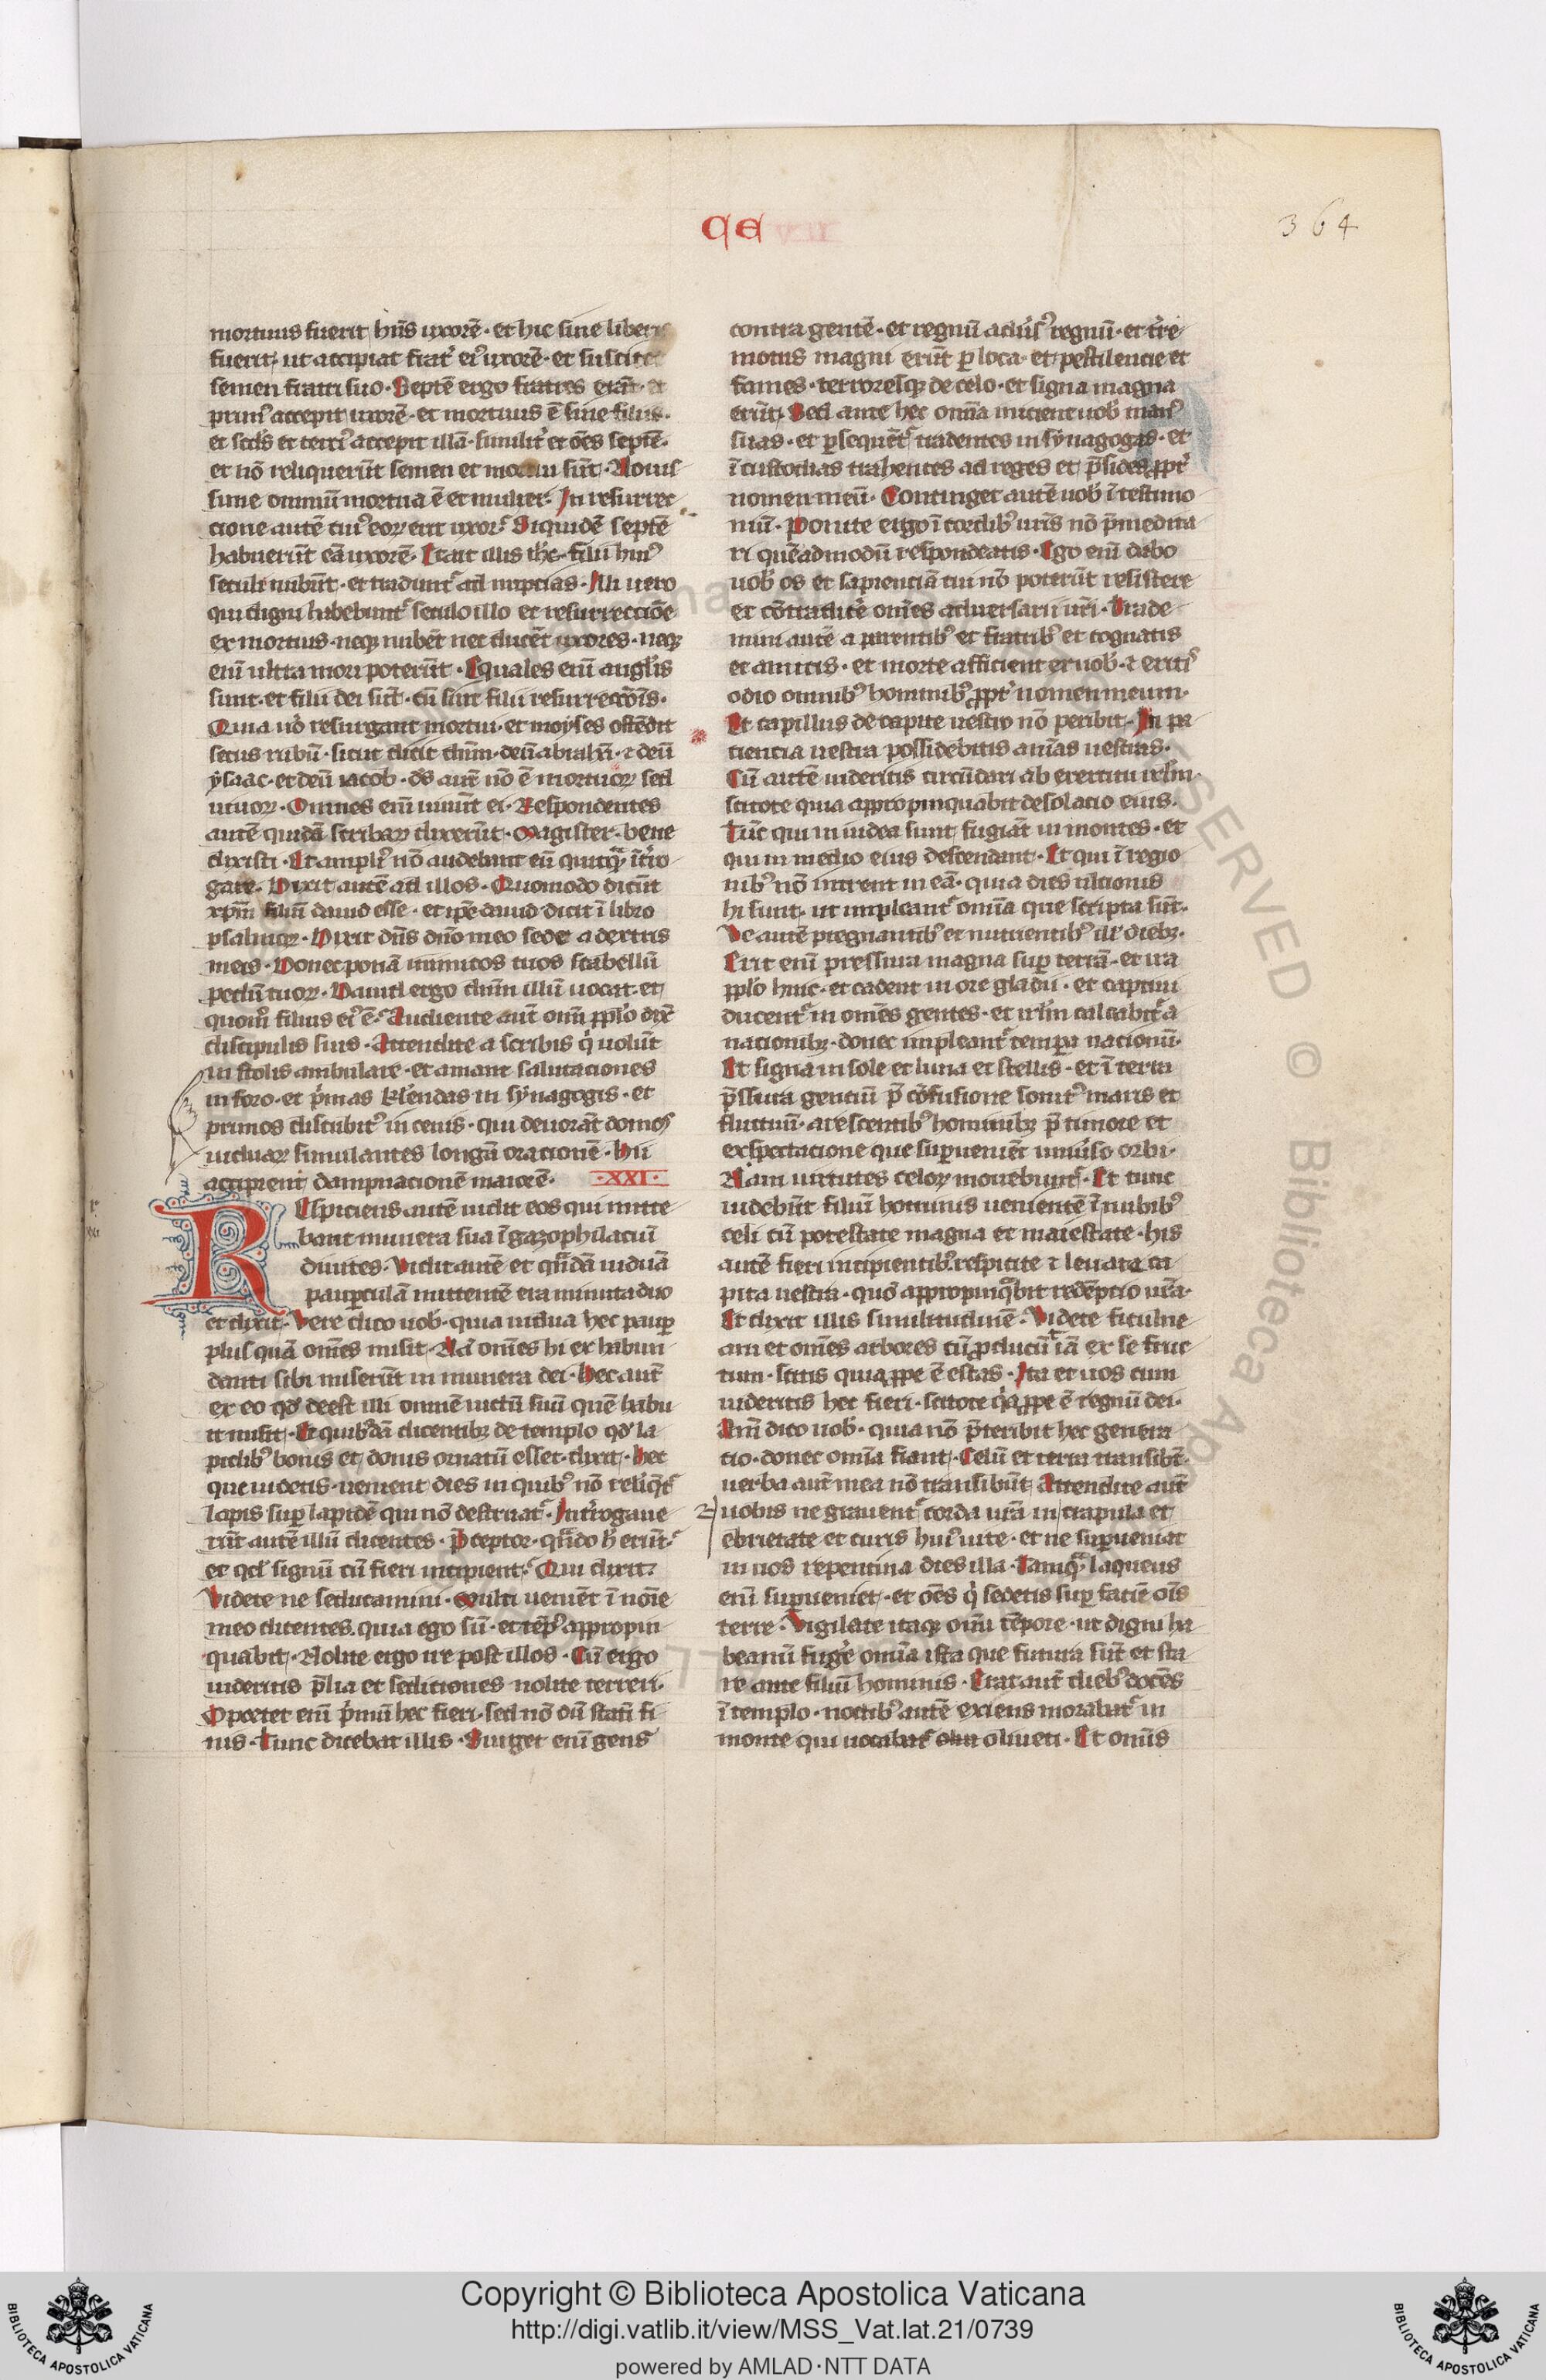 CE
364
mortuus fuerit hn̄s uxorē · et hic sine liberis
fuerit · ut accipiat frat᷑ ei⁹ uxorē · et suscitet
semen fratri suo · Septē ergo fratres erāt · et
prim⁹ accepit uxorē · et mortuus ē sine filiis ·
et scd̄s et terci⁹ accepit illā · similit᷑ et oēs septē ·
et nō reliquerūt semen et mortui sūt · Nouis
sime omniū mortua ē et mulier · In resurrec
cione autē cui⁹ eoꝝ erit uxor · Siquidē septē
habuerūt eā uxorē · Et ait illis ih̄c · filii hui⁹
seculi nubūt · et tradunt᷑ ad nupcias · Illi uero
qui digni habebunt᷑ seculo illo et resurreccōe
ex mortuis · neqꝫ nubēt nec ducēt uxores · neqꝫ
enī ultra mori poterūt · Equales enī angl̄is
sunt · et filii dei sūt · cū sint filii resurrecc̄ōis ·
Quia uō resurgant mortui · et moyses ostēdit
secus rubū · sicut dicit dn̄m · deū abrahā · ⁊ deū
ysaac · et deū iacob · ds̄ aut̄ nō ē mortuoꝝ sed
uiuoꝝ · Omnes enī uiuūt ei · Respondentes
autē quidā scribaꝝ dixerūt · Magister · bene
dixisti · Et ampli⁹ nō audebant eū quicq̄ īt᷑ro
gare · Dixit autē ad illos · Quomodo dicūt
xp̄m filiū dauid esse · et ip̄e dauid dicit ī libro
psalmoꝝ · Dixit dn̄s dn̄o meo sede a dextris
meis · Donec ponā inimicos tuos scabellū
pedū tuoꝝ · Dauid ergo dn̄m illū uocat · et
quom̊ filius ei⁹ ē · Audiente aut̄ om̄i ppl̄o dix̄
discipulis suis · Attendite a scribis q̇ uolūt
in stolis ambulare · et amant salutaciones
in foro · et p̓mas kl̄endas in synagogis · et
primos discubit⁹ in cenis · qui deuorāt domos
uiduaꝝ simulantes longā oracionē · Hii
accipient dampnacionē maiorē · ·XXI·
REspiciens autē uidit eos qui mitte
bant munera sua ī gazophilaciū
diuites · Vidit autē et qn̄dā uiduā
paupculā mittentē era minuta duo
et dixit · Vere dico uob̓ · quia uidua hec paup
plus quā om̄es misit · Nā om̄es hi ex habun
danti sibi miserūt in munera dei · Hec aut̄
ex eo qd̓ deest illi omnē uictū suū quē habu
it misit · Et quib⁹dā dicentibꝫ de templo qd̓ la
pidib⁹ bonis et donis ornatū esset · dixit · Hec
que uidetis · uenient dies in quib⁹ nō relīqt᷑
lapis sup lapidē qui nō destruat᷑ · Int᷑rogaue
rūt autē illū dicentes · P̄ceptor · qn̄do h̄ erūt ·
et qd̓ signū cū fieri incipient · Qui dixit ·
Videte ne seducamini · Multi ueniēt ī noīe
meo dicentes · quia ego sū · et tēp⁹ appropin
quabit · Nolite ergo ire post illos · Cū ergo
uideritis p̄lia et sediciones nolite terreri ·
Oportet enī p̓mū hec fieri · sed nō dū statī fi
nis · Tunc dicebat illis · Surget enī gens
contra gentē · et regnū adūs⁹ regnū · et t᷑re
motus magni erūt p loca · et pestilencie et
fames · terroresqꝫ de celo · et signa magna
erūt · Sed ante hec omīa inicient uob̓ man⁹
suas · et psequēt᷑ tradentes in synagogas · et
ī custodias trahentes ad reges et p̄sides ꝓpt᷑
nomen meū · Continget autē uob̓ ī testimo
niū · Ponite ergo ī cordib⁹ ur̄is nō p̄medita
ri quēadmodū respondeatis · Ego enī dabo
uob̓ os et sapienciā cui nō poterūt resistere
et cōtradic̄e om̄es aduersarii ur̄i · Trade
mini autē a parentib⁹ et fratrib⁹ et cognatis
et amicis · et morte afficient ex uob̓ · ⁊ erit᷑
odio omnib⁹ hominib⁹ ꝓpt᷑ nomen meum ·
Et capillus de capite uestro nō peribit · In pa
ciencia uestra possidebitis anīas uestras ·
Cū autē uideritis circūdari ab exercitu irl̄m ·
scitote quia appropinquabit desolacio eius ·
Tūc qui in iudea sunt fugiāt in montes · et
qui in medio eius descendant · Et qui ī regio
nib⁹ nō intrent in eā · quia dies ulcionis
hi sunt · ut impleant᷑ omīa que scripta sūt ·
Ve autē pregnantib⁹ et nutrientib⁹ ill̄ diebꝫ ·
Erit enī pressura magna sup terrā · et ira
ppl̄o huic · et cadent in ore gladii · et captiui
ducent᷑ in om̄es gentes · et irl̄m calcabit᷑ a
nacionibꝫ · donec impleant᷑ tempa nacionū ·
Et signa in sole et luna et stellis · et ī terra
p̄ssura genciū p̄ cōfusione sonit⁹ maris et
fluctuū · arescentib⁹ hominibꝫ p̄ timore et
exspectacione que supuenient uniūso orbi ·
Nam uirtutes celoꝝ mouebunt᷑ · Et tunc
uidebūt filiū hominis uenientē ī nubib⁹
celi cū potestate magna et maiestate · his
autē fieri incipientib⁹ respicite ⁊ leuata ca
pita uestra · quō appropinqbit redēpcio ur̄a ·
Et dixit illis similitudinē · Videte ficulne
am et om̄es arbores cū ꝓducūt iā ex se fruc
tum · scitis quia ꝓpe ē estas · Ita et uos cum
uideritis hec fieri · scitote qa ꝓpe ē regnū dei ·
Am̄ dico uob̓ · quia nō p̄teribit hec genera
tio · donec omīa fiant · Celū et terra transibūt ·
uerba aut̄ mea nō transibūt · Attendite aut̄
uobis ne grauent᷑ corda ur̄a in crapula et
ebrietate et curis hui⁹ uite · et ne supueniat
in uos repentina dies illa · Tamq̄ laqueus
enī supueniet · et oēs q̇ sedetis sup faciē ōis
terre · Vigilate itaqꝫ om̄i tēpore · ut digni ha
beamī fug̓e omīa ista que futura sūt et sta
re ante filiū hominis · Erat aut̄ dieb⁹ docēs
ī templo · noctib⁹ autē exiens morabat᷑ in
monte qui uocabat᷑ oliueti · Et om̄is
Copyright © Biblioteca Apostolica Vaticana
http://digi.vatlib.it/view/MSS_Vat.lat.21/0739
powered by AMLAD·NTT DATA
BIBLIOTECA APOSTOLICA VATICANA
BIBLIOTECA APOSTOLICA VATICANA